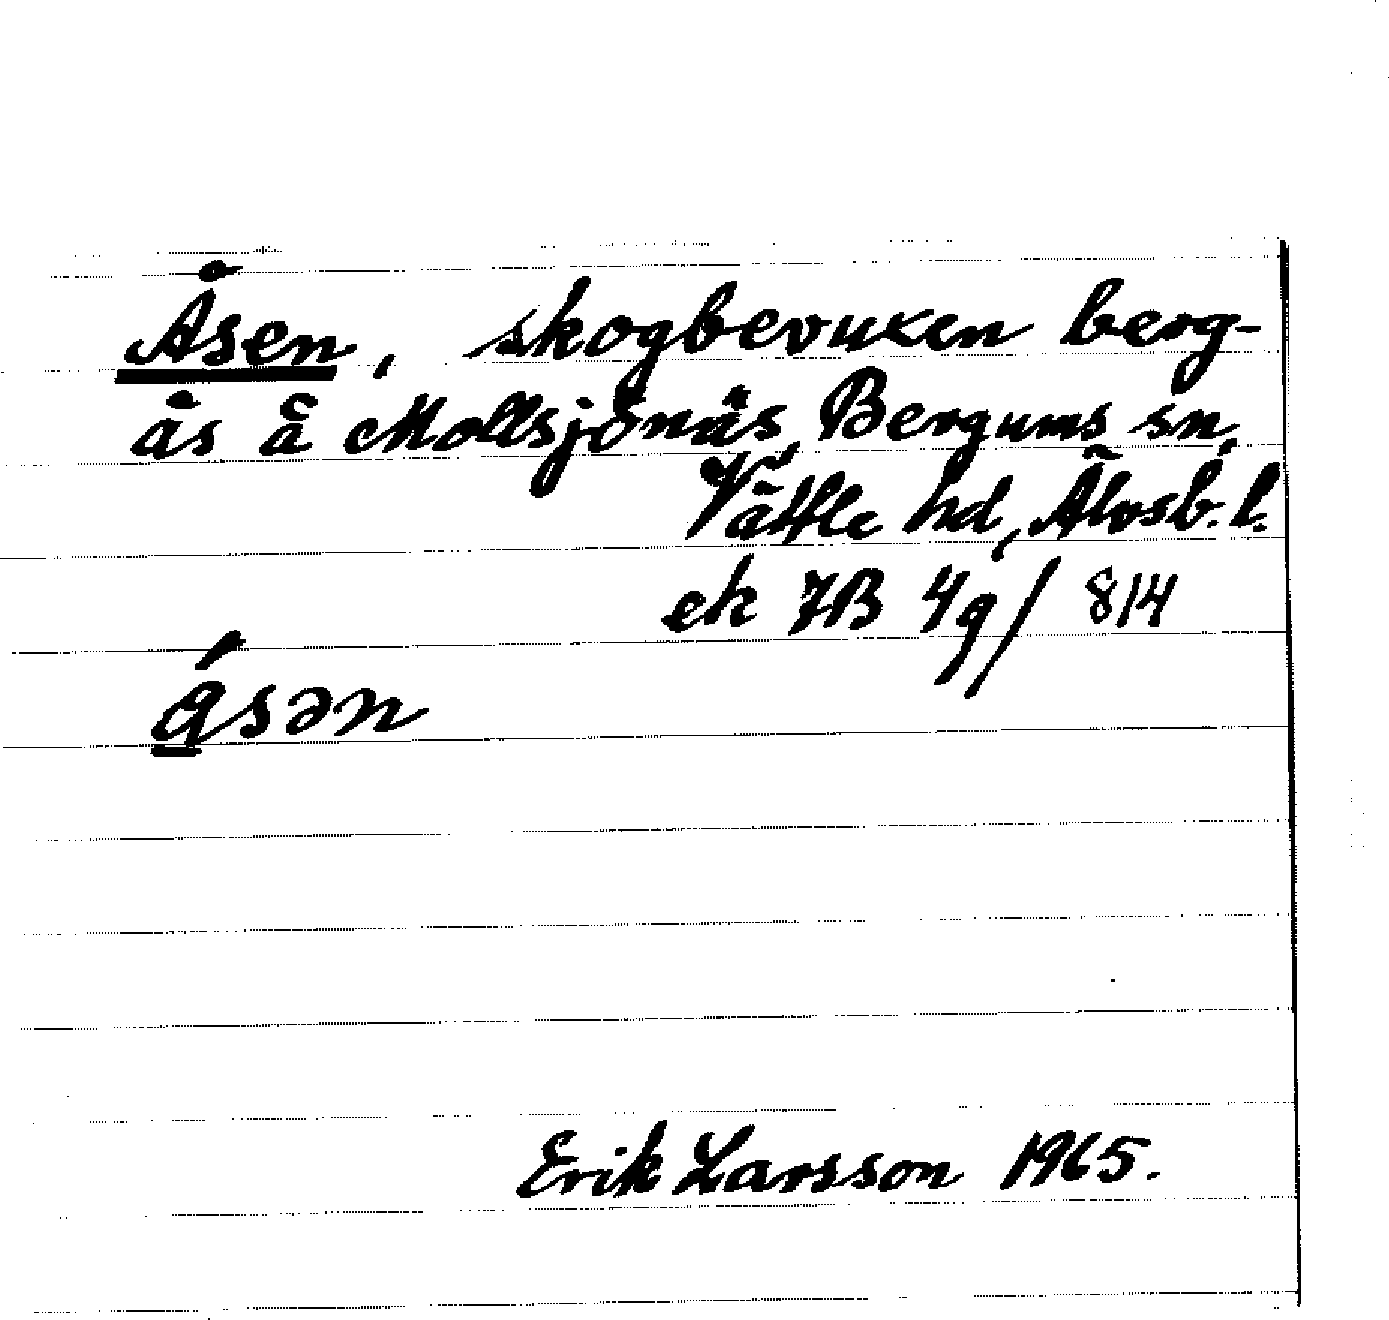 Åsen, skogbevuxen berg-
ås å Mollsjönäs, Bergums sn,
Vättle hd, Älvsb. l.
ek 7B 4g/ 814
á̱sən
Erik Larsson 1965.